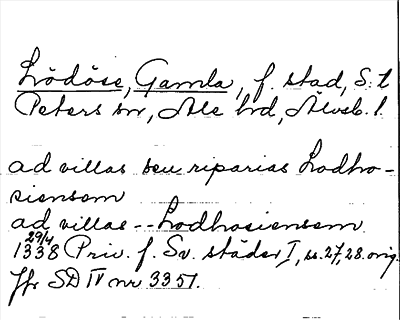 Lödöse, Gamla, f. stad, S:t
Peters sn, Ale hd, Älvsb. l.
ad villas seu riparias Lodho-
siensem
ad villas -- Lodhosiensem
29/4
1338 Priv. f. Sv. städer I, ss. 27, 28. orig.
Jfr SD IV nr 3351.